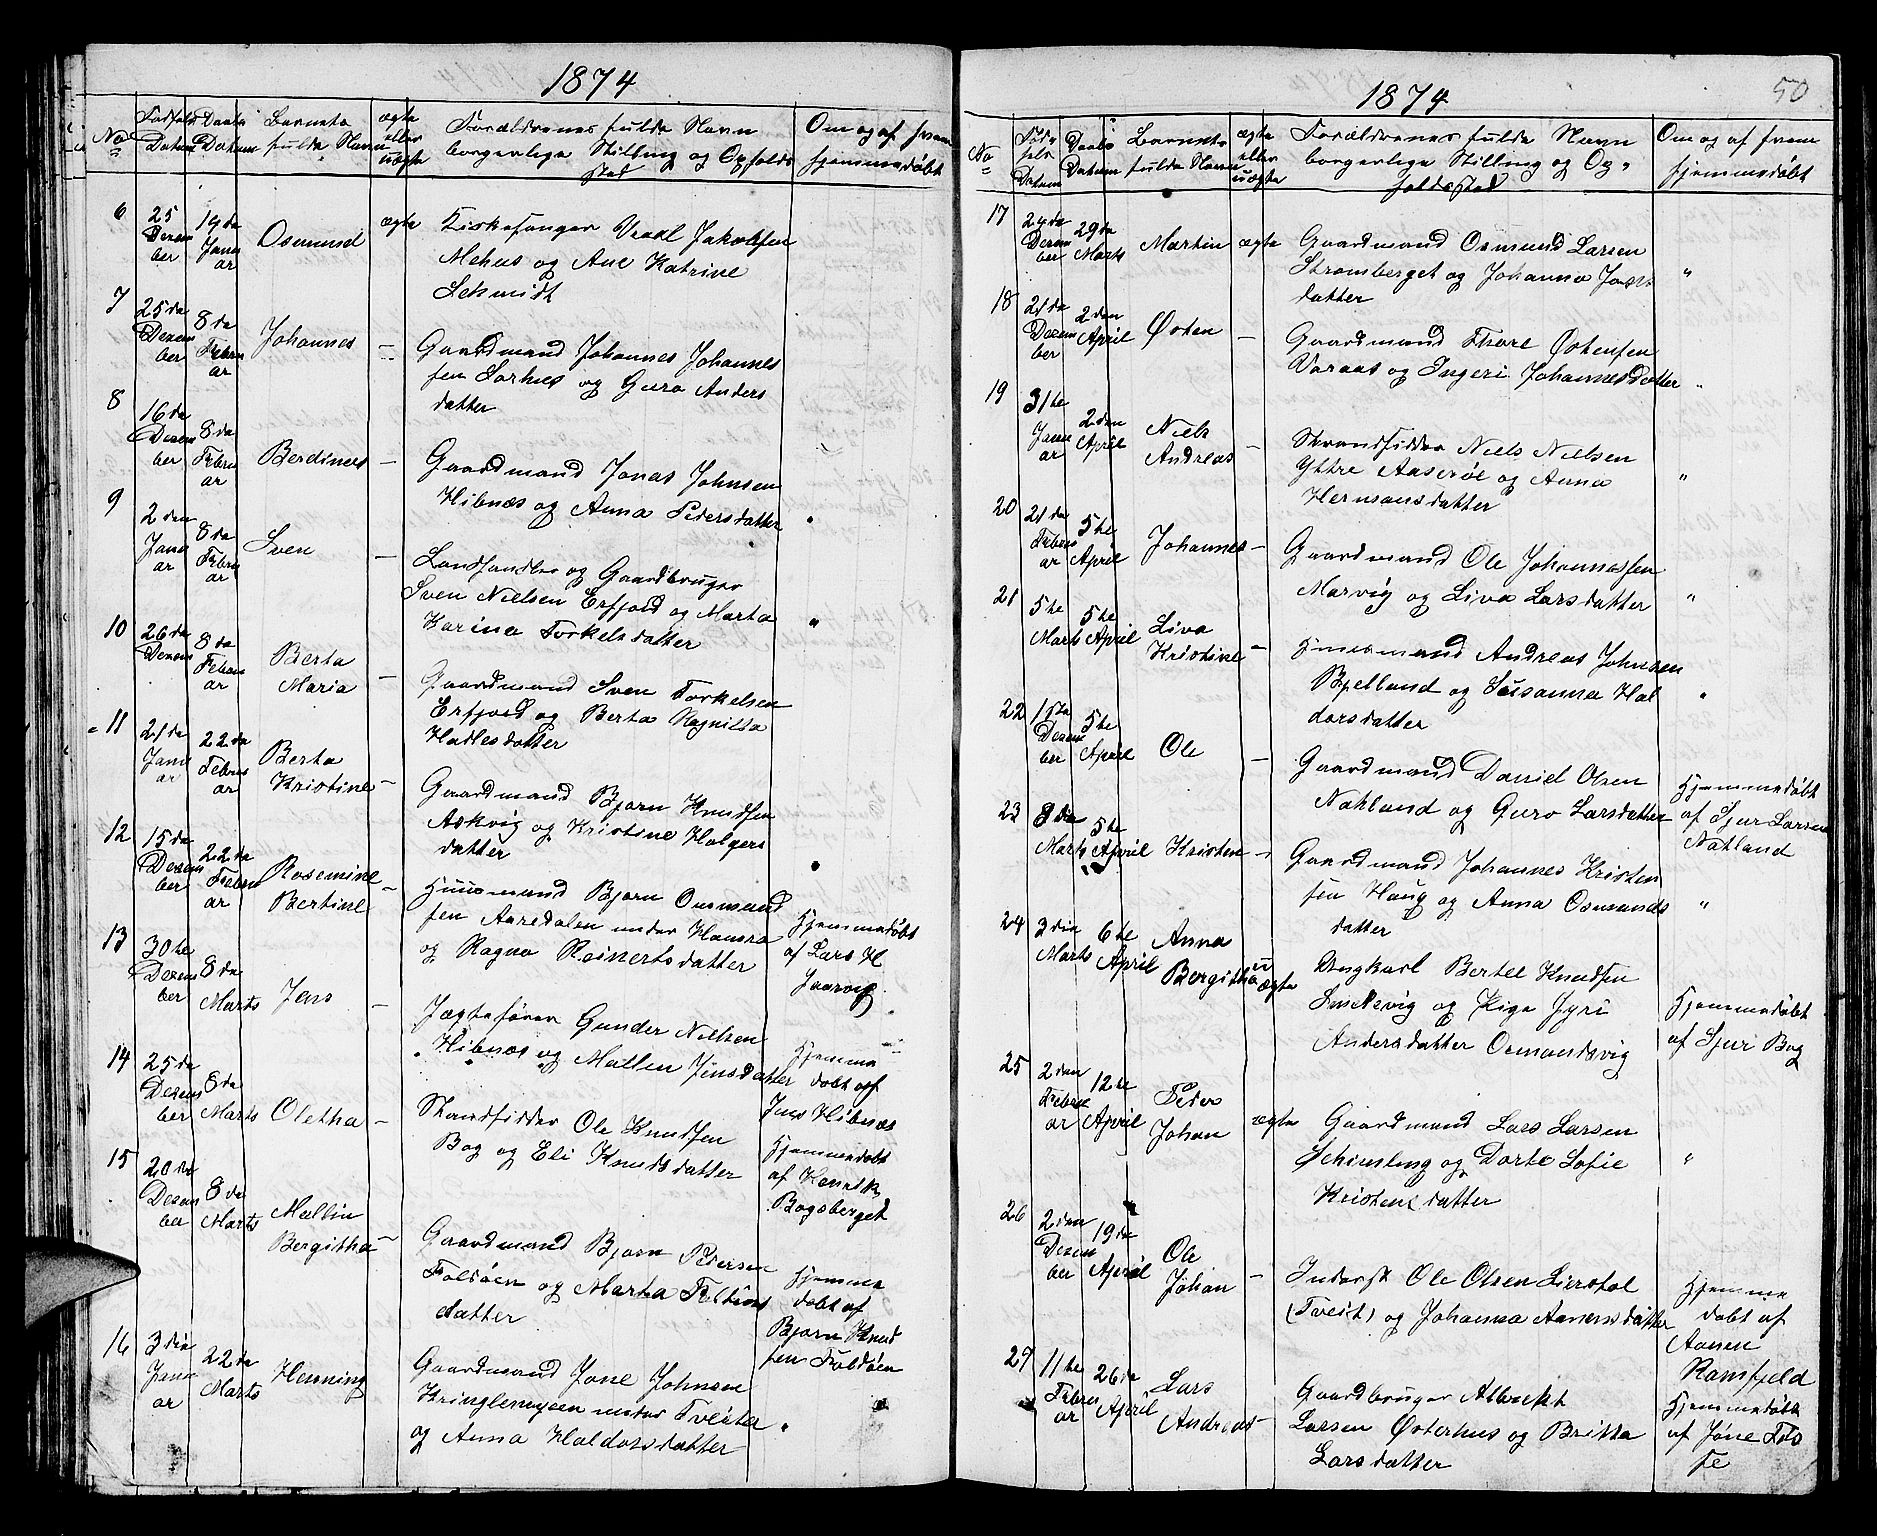 1874
No
Fødsels Datum
Daabs Datum
Barnets fulde Navn
ægte eller uægte
Forældrenes fulde Navn
borgerlige Stilling og Opholds
sted
Om og af hvem
hjemmedøbt
6
25 Dezember
19da Januar
Osmund
ægte
Kirkesanger Vraal Jakobsen
Mehus og Ane Katrine
Schmidt
7
25da Dezember
8da Februar
Johannes
—
Gaardmand Johannes Johannes
sen Sørhus og Guro Anders
datter
8
16da Dezember
8da Februar
Berdines
—
Gaardmand Jonas Johnsen
Hibnæs og Anna Pedersdatter
9
2den Januar
8da Februar
Sven
—
Landhandler og Gaardbruger
Sven Nielsen Erfjord og Marta
Karina Torkelsdatter
"
10
26da Dezem
8da Februar
Berta
Maria
—
Gaardmand Sven Torkelsen
Erfjord og Berta Magnilla
Hallesdatter
11
21da Januar
22da Februar
Berta
Kristine
—
Gaardmand Bjørn Knudsen
Askvig og Kristine Holgers
datter
12
15da Dezember
22da Februar
Rosemine
Bertine
—
Huusmand Bjørn Osmund
sen Aaredalen under Hamra
og Ragna Reinertsdatter
Hjemmedøbt
af Lars H
Haarvig
13
30te Dezember
8da Marts
Jens
—
Jægtefører Gunder Nielsen
Hibnæs og Mallen Jensdatter
Hjemme
døbt af
Jens Hibnæs
14
25da Dezember
8da Marts
Oletha
—
Strandsidder Ole Knudsen
Bog og Eli Knudsdatter
Hjemmedøbt
af Henrik
Bogsberget
15
20de Dezember
8da Marts
Mallin
Bergitha
—
Gaardmand Bjørn Pedersen
Foldøen og Marta
datter
Hjemme
døbt af
Bjørn Knud
sen Foldøen
16
3die Januar
22da Marts
Henning
Gaardmand Jone Johnsen
Kringlemyren under Tveiter
og Anna Haldorsdatter
"
1874
50
No
Fødsels Datum
Daabs Datum
Barnets fulde Navn
ægte eller uægte
Forældrenes fulde Navn
borgerlige Stilling og Op
holdssted
Om og af hvem
hjemmedøbt
17
24da Dezember
29da Marts
Martin
ægte
Gaardmand Osmund Larsen
Stromberget og Johanna Jons
datter
"
18
21da Dezember
2den April
Østen
—
Gaardmand Thore Østensen
Varaas og Ingeri Johannesdatter
"
19
31te Januar
2den April
Niels
Andreas
—
Strandsidder Niels Nielsen
Yttre Aaserøe og Anna
Hermansdatter
"
20
21da Februar
5te April
Johannes
—
Gaardmand Ole Johannessen
Marvig og Liva Larsdatter
"
21
5te Marts
5te April
Liva
Kristine
—
Huusmand Andreas Johnsen
Bjelland og Susanna Hal
dorsdatter
"
22
Dezember
5te April
Ole
—
Gaardmand Daniel Olsen
Natland og Guro Larsdatter
Hjemmedøbt
af Sjur Larsen
Natland
23
8da Marts
5te April
Kristen
—
Gaardmand Johannes Kristen
sen Haug og Anna Osmunds
datter
"
24
3die Marts
6te April
Anna
Bergitha
uægte
Ungkarl Bertel Knudsen
Smedsvig og Pige Gyri
Andersdatter Osmundsvig
Hjemmedøbt
af Sjur Bog
25
2den Februar
12te April
Peder
Johan
ægte
Gaardmand Lars Larsen
og Dorte Sofie
Kristensdatter
"
26
2den Dezember
19da April
Ole
Johan
—
Inderst Ole Olsen Lierstøl
(Tveit) og Johanna Aanensdatter
Hjemme
døbt af
Aanen
Ramfjeld
27
11te Februar
26da April
Lars
Andreas
—
Gaardbruger Albrekt
Larsen Østerhus og Britta
Larsdatter
Hjemmedøbt
af Jone Fos
se